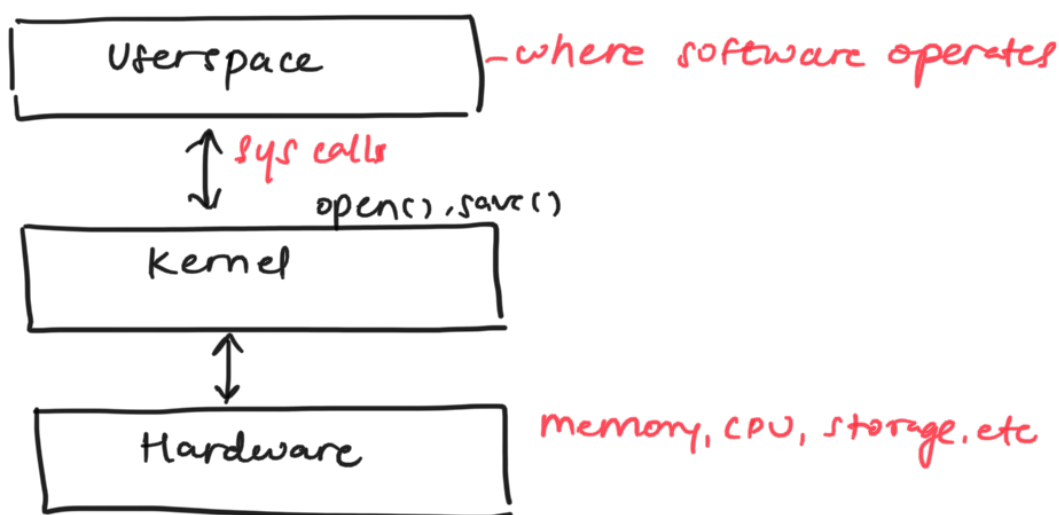 Userspace
-where software operates
sys calls
open(), save()
Kernel
Hardware
memory, CPU, storage, etc